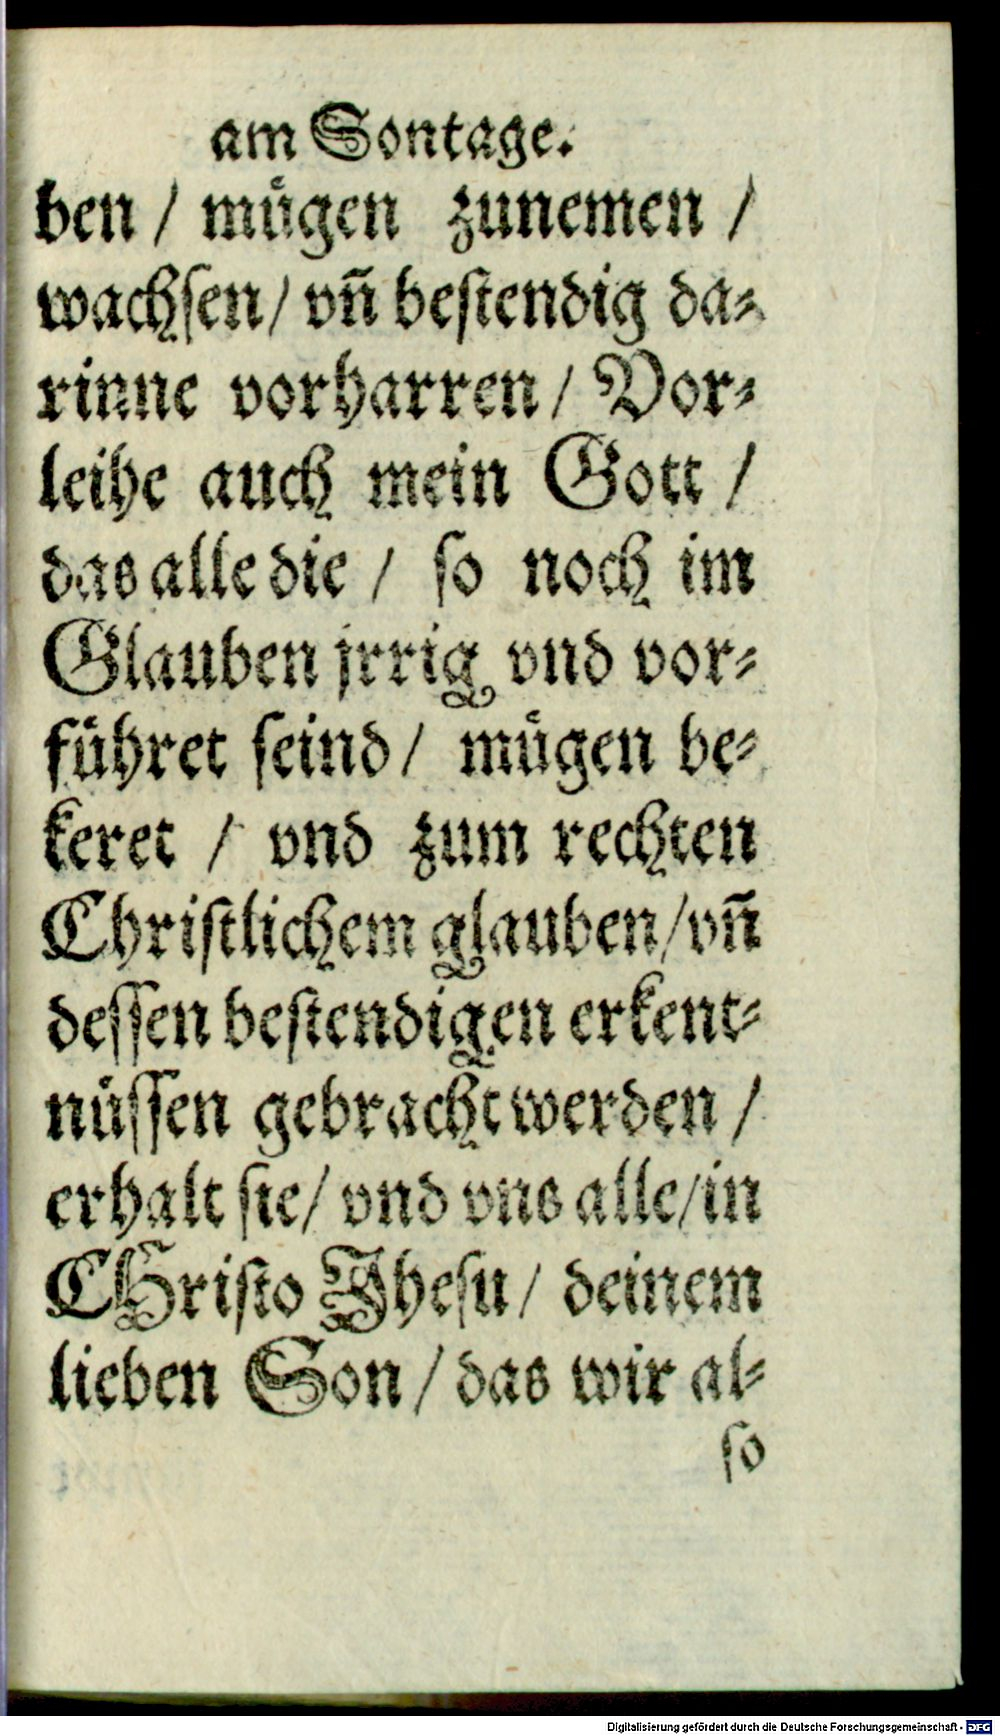 am Sontage.
ben / muͤgen zunemen /
wachſen/ vñ beſtendig da⸗
rinne vorharren / Vor⸗
leihe auch mein Gott /
das alle die / ſo noch im
Glauben jrrig vnd vor⸗
fuͤhret ſeind / muͤgen be⸗
keret / vnd zum rechten
Chriſtlichem glauben/vñ
deſſen beſtendigen erkent⸗
nuͤſſen gebracht werden /
erhalt ſie/ vnd vns alle/in
CHriſto Jheſu/ deinem
lieben Son / das wir al⸗
ſo
Digitalisierung gefördert durch die Deutsche Forschungsgemeinschaft - DFG